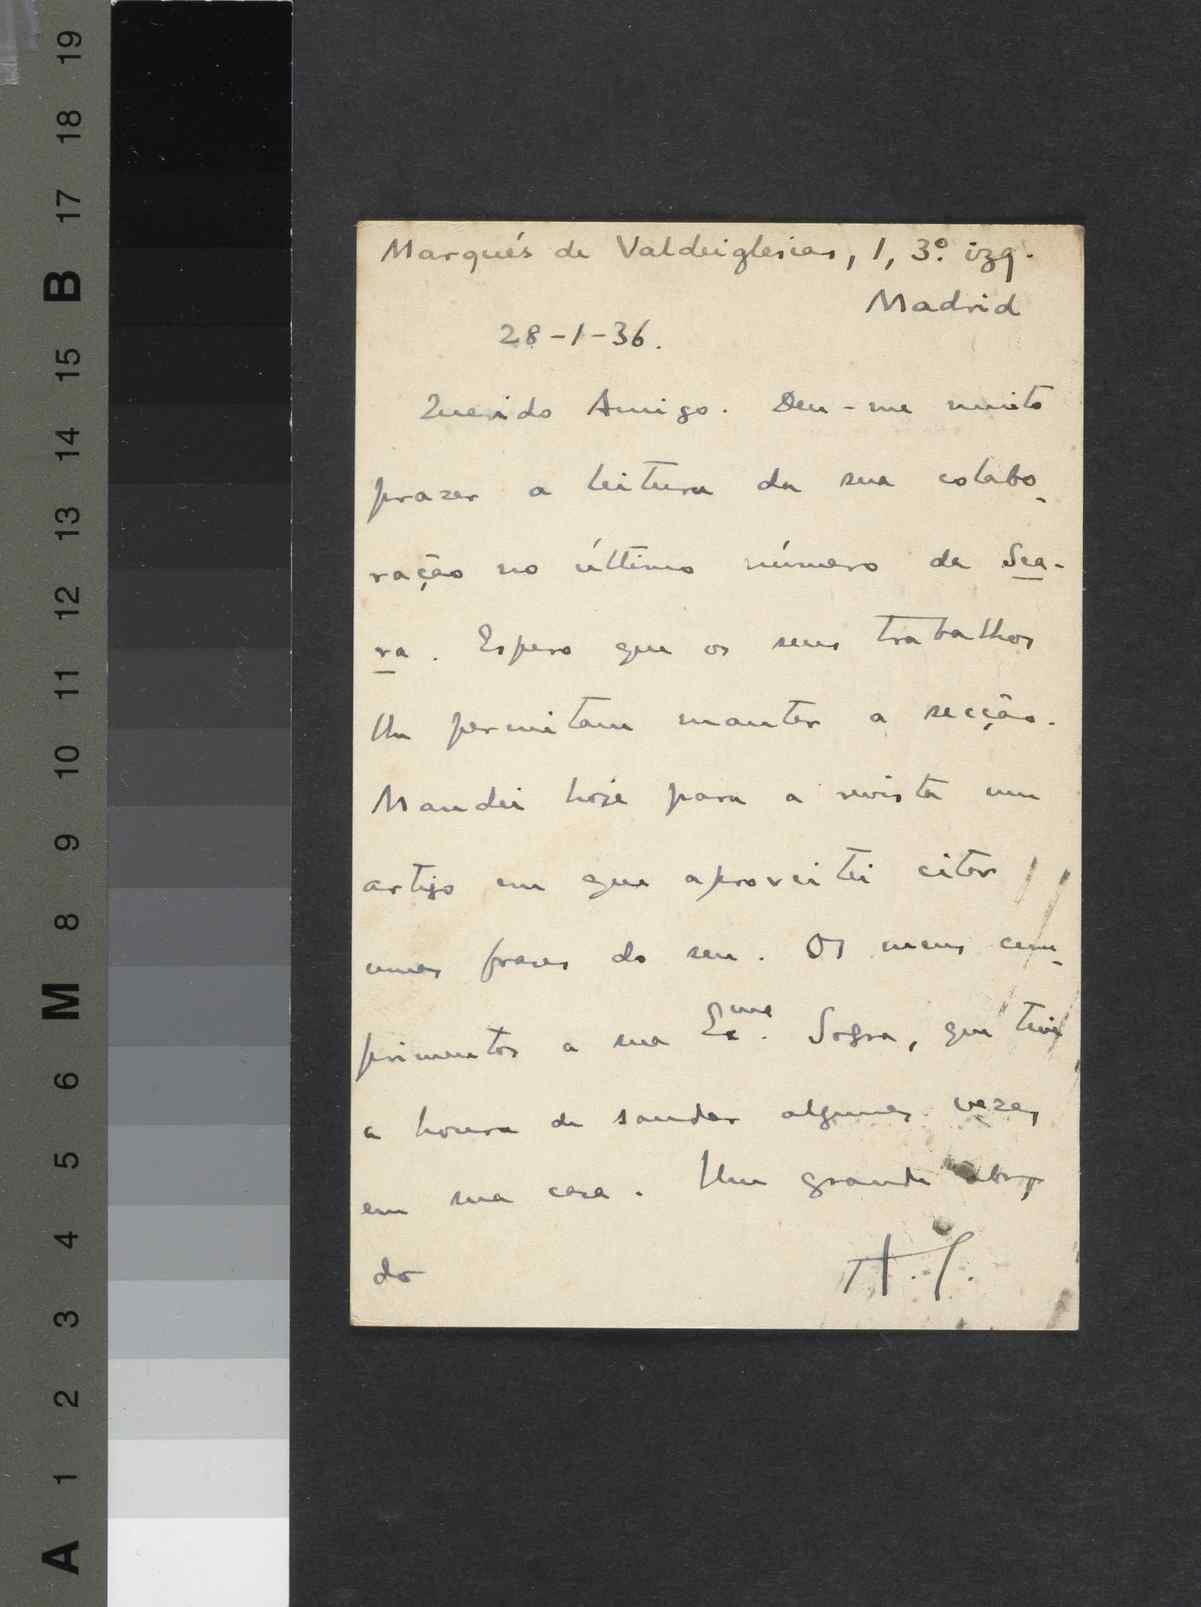 Marqués de Valdeiglesias, 1, 3º izq.
Madrid
28-1-36.
Querido Amigo. Deu-me muito
prazer a leitura da sua colabo-
ração no último número da Sea-
ra. Espero que os seus trabalhos
lhe permitam manter a secção.
Mandei hoje para a revista um
artigo em que aproveitei citar
umas frases do seu. Os meus cum-
primentos a sua Exma. Sogra, que tive
a honra de saudar algumas vezes
em sua casa. Um grande abraç
do
A. S.
A 1 2 3 4 5 6 M 8 9 10 11 12 13 14 15 B 17 18 19